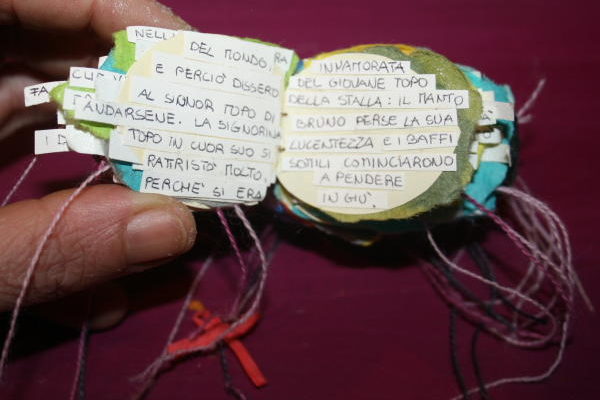 NELL
DEL MONDO
RA
E PERCIO' DISSERO
AL SIGNOR TOPO DI
ANDARSENE. LA SIGNORINA
TOPO IN CUOR SUO SI
RATTRISTO' MOLTO,
PERCHE' SI ERA
FA
I D
INNAMORATA
DEL GIOVANE TOPO
DELLA STALLA: IL MANTO
BRUNO PERSE LA SUA
LUCENTEZZA E I BAFFI
SOTTILI COMINCIARONO
A PENDERE
IN GIU'.